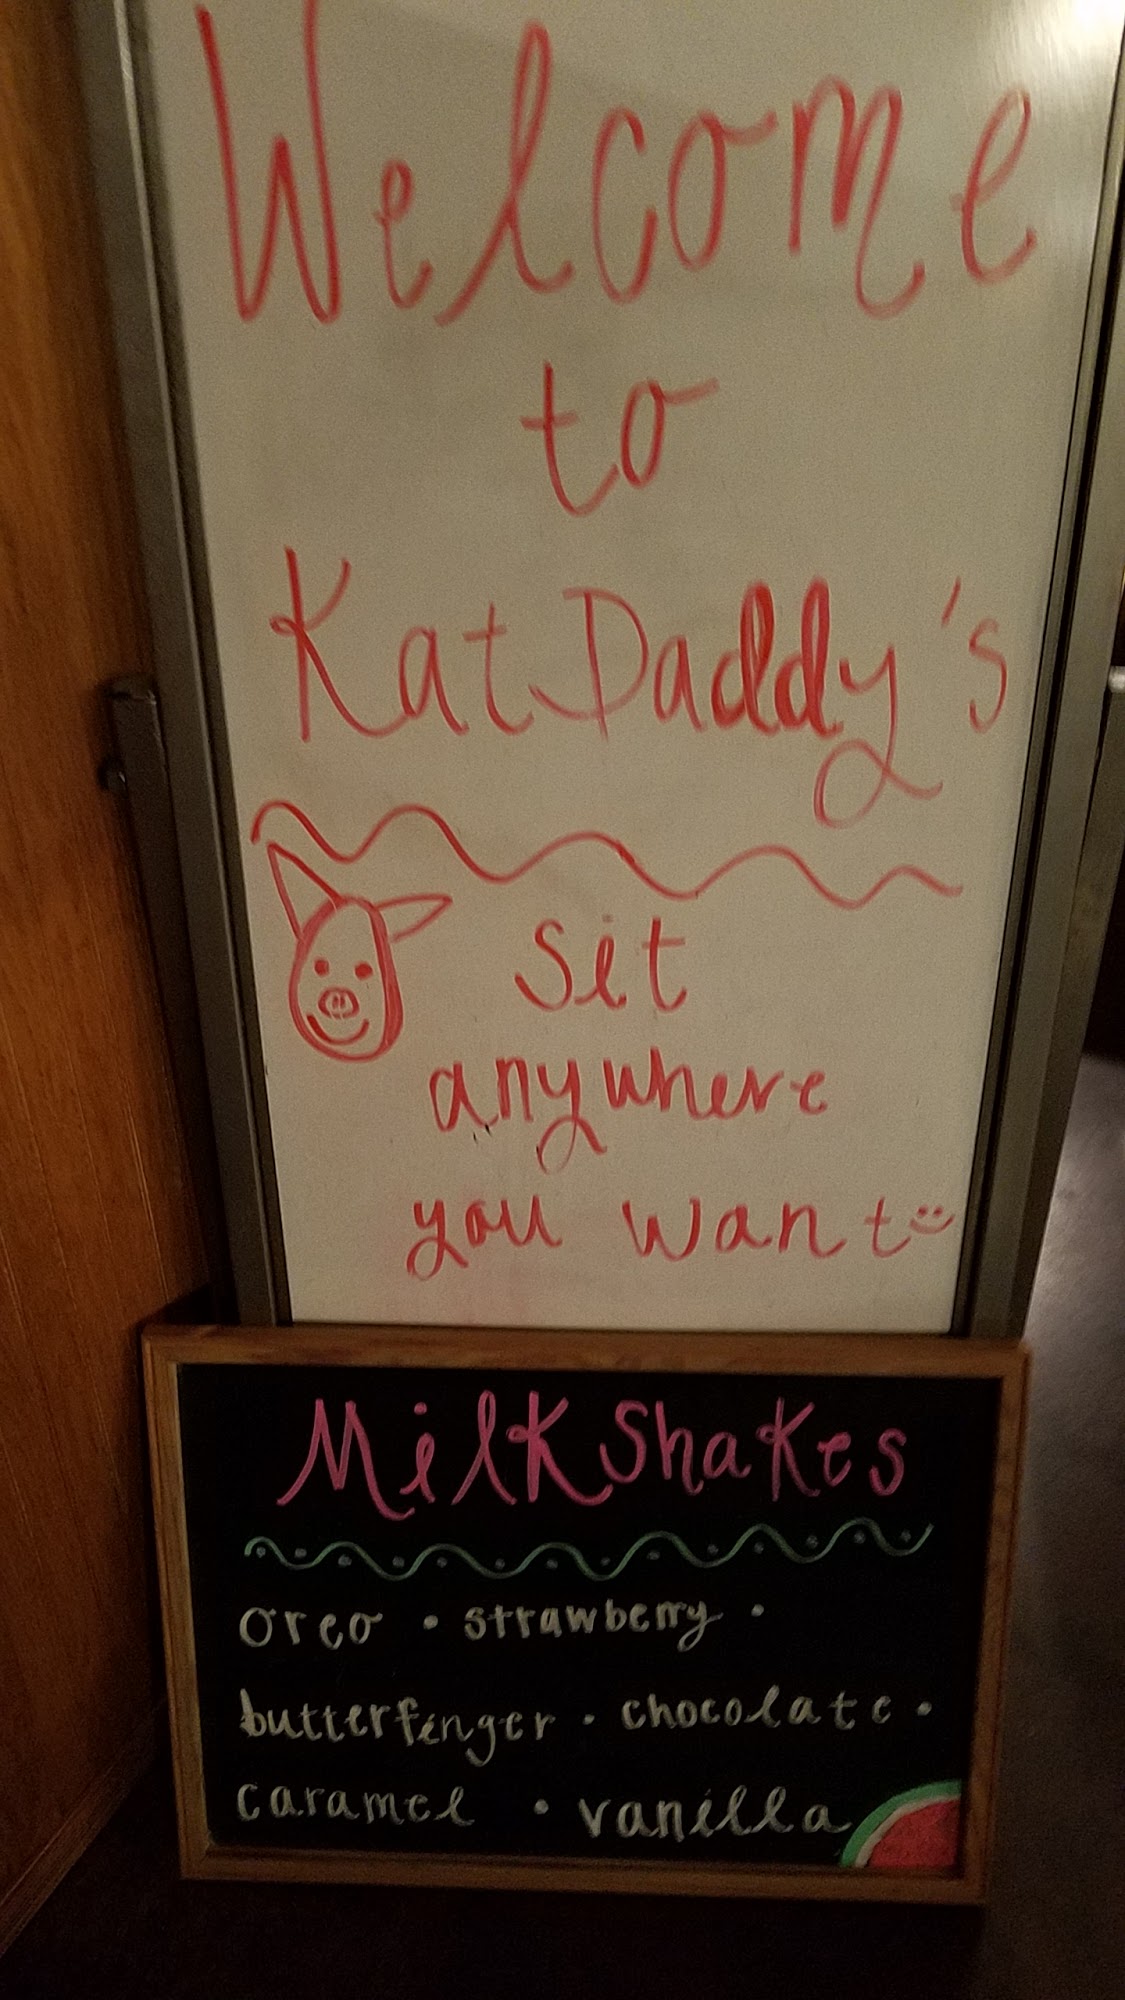 Welcome
to
KatDaddy's
Sit
anywhere
you want
MilkShakes
oreo • strawberry •
butterfinger • chocolate •
caramel • vanilla